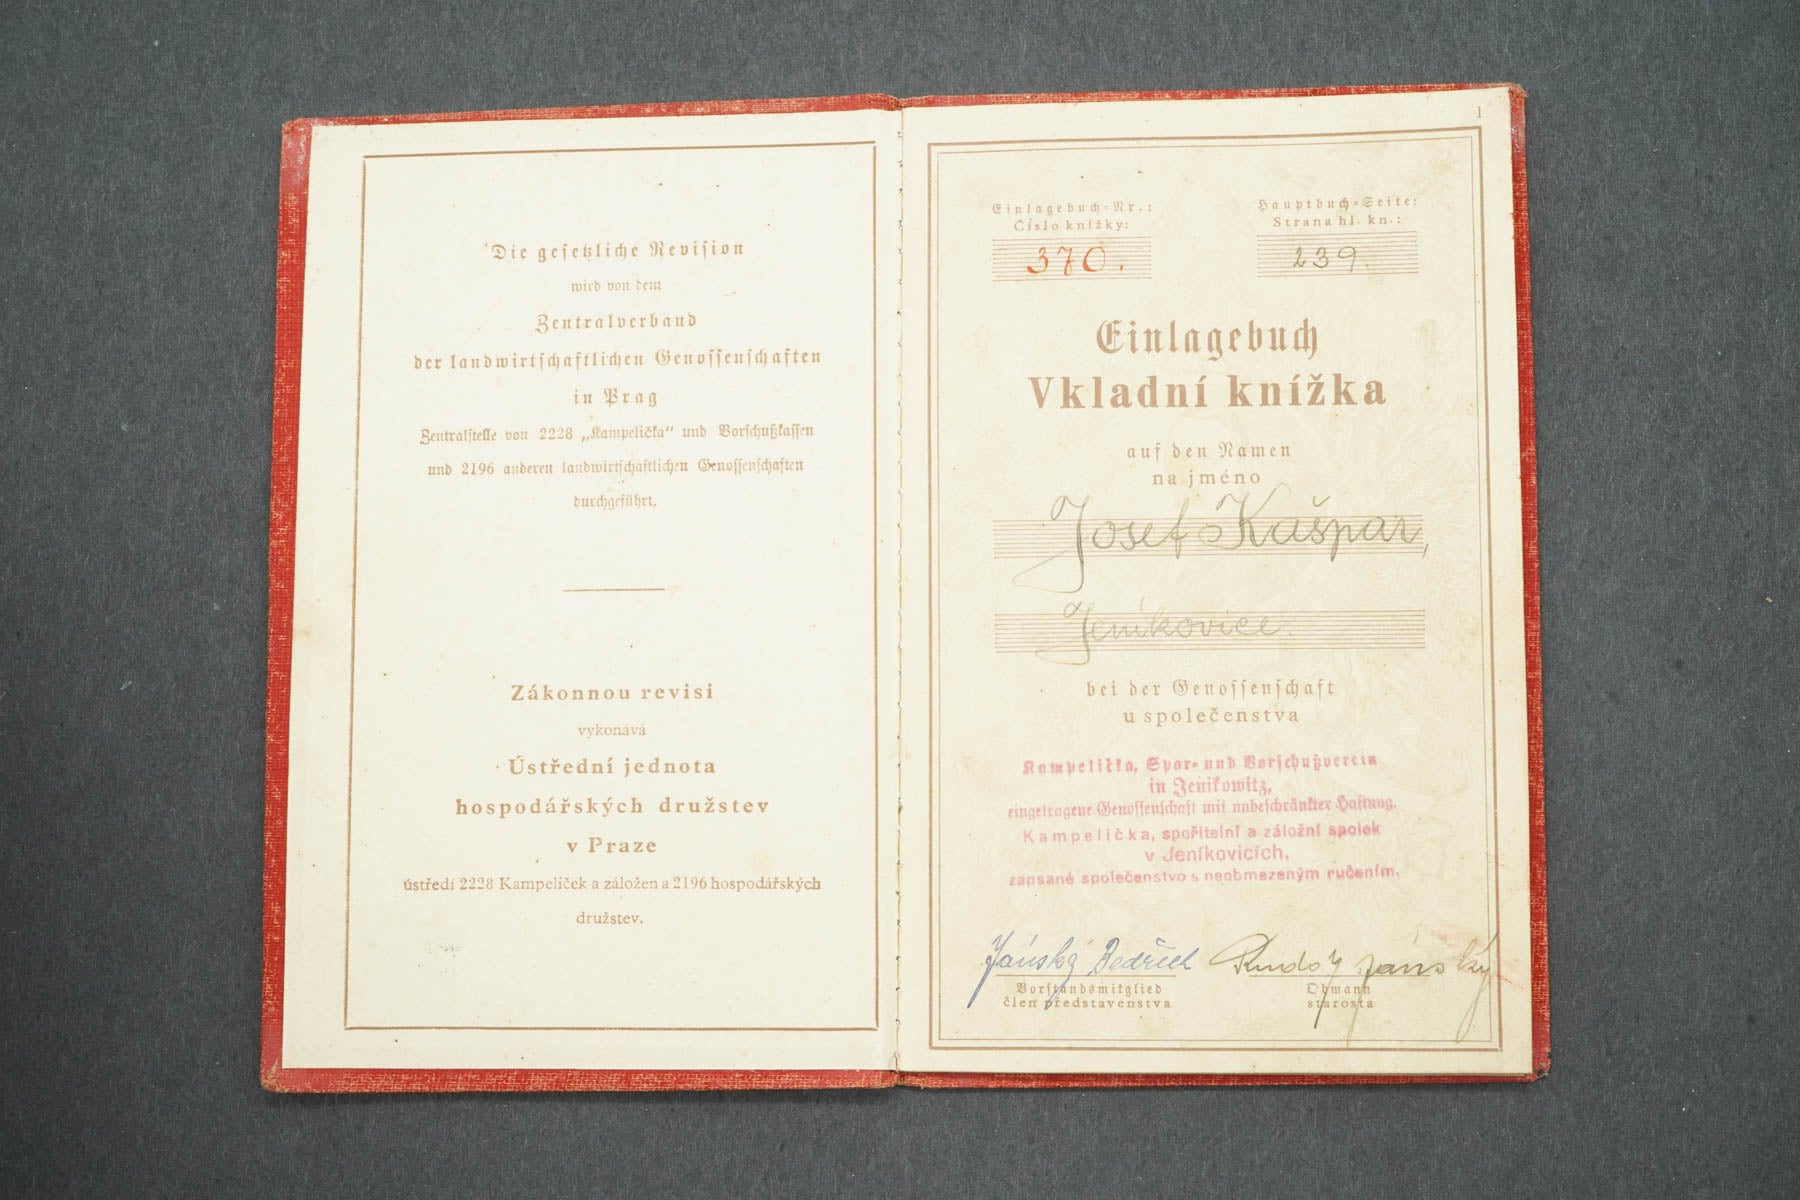 Die gesetzliche Revision
wird von dem
Zentralverband
der landwirtschaftlichen Genossenschaften
in Prag
Zentralstelle von 2228 „Kampelička“ und Vorschußkassen
und 2196 anderen landwirtschaftlichen Genossenschaften
durchgeführt.
Zákonnou revisi
vykonává
Ústřední jednota
hospodářských družstev
v Praze
ústředí 2228 Kampeliček a záložen a 2196 hospodářských
družstev.
1
Einlagebuch-Nr.:
Číslo knížky:
370.
Hauptbuch-Seite:
Strana hl. kn.:
239.
Einlagebuch
Vkladní knížka
auf den Namen
na jméno
Josef Kašpar,
Jeníkovice.
bei der Genossenschaft
u společenstva
Kampelička, Spar- und Vorschußverein
in Jenikowitz,
eingetragene Genossenschaft mit unbeschränkter Haftung.
Kampelička, spořitelní a záložní spolek
v Jeníkovicích,
zapsané společenstvo s neobmezeným ručením.
Jánský Bedřich
Rudolf Jánský
Vorstandsmitglied
člen představenstva
Obmann
starosta